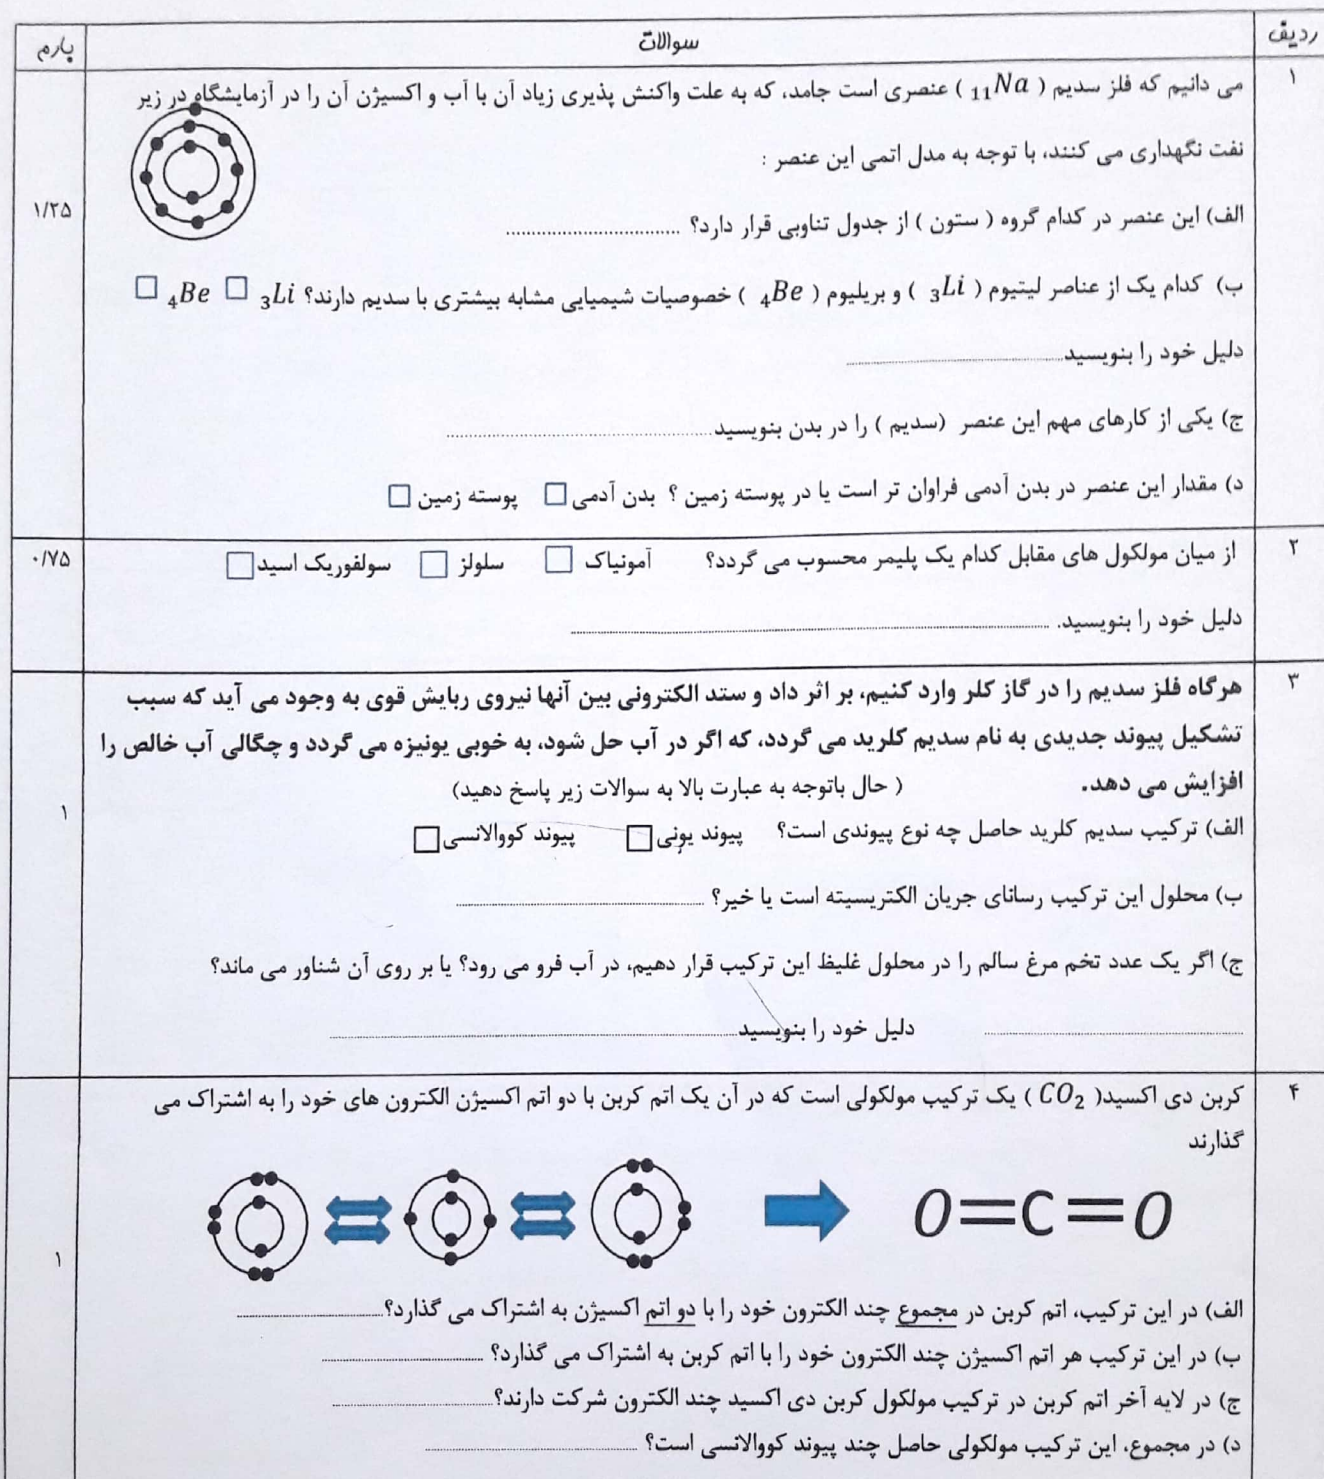 ردیف سوالات بارم
۱ می دانیم که فلز سدیم ( ₁₁Na ) عنصری است جامد، که به علت واکنش پذیری زیاد آن با آب و اکسیژن آن را در آزمایشگاه در زیر
نفت نگهداری می کنند، با توجه به مدل اتمی این عنصر :
۱/۲۵
الف) این عنصر در کدام گروه ( ستون ) از جدول تناوبی قرار دارد؟ ................................
ب) کدام یک از عناصر لیتیوم ( ₃Li ) و بریلیوم ( ₄Be ) خصوصیات شیمیایی مشابه بیشتری با سدیم دارند؟ ₃Li □ ₄Be □
دلیل خود را بنویسید................................
ج) یکی از کارهای مهم این عنصر (سدیم ) را در بدن بنویسید................................
د) مقدار این عنصر در بدن آدمی فراوان تر است یا در پوسته زمین ؟ بدن آدمی □ پوسته زمین □
۲ از میان مولکول های مقابل کدام یک پلیمر محسوب می گردد؟ آمونیاک □ سلولز □ سولفوریک اسید □ ۰/۷۵
دلیل خود را بنویسید. ................................
۳ هرگاه فلز سدیم را در گاز کلر وارد کنیم، بر اثر داد و ستد الکترونی بین آنها نیروی ربایش قوی به وجود می آید که سبب
تشکیل پیوند جدیدی به نام سدیم کلرید می گردد، که اگر در آب حل شود، به خوبی یونیزه می گردد و چگالی آب خالص را
افزایش می دهد. ( حال باتوجه به عبارت بالا به سوالات زیر پاسخ دهید)
۱
الف) ترکیب سدیم کلرید حاصل چه نوع پیوندی است؟ پیوند یونی □ پیوند کووالانسی □
ب) محلول این ترکیب رسانای جریان الکتریسیته است یا خیر؟ ................................
ج) اگر یک عدد تخم مرغ سالم را در محلول غلیظ این ترکیب قرار دهیم، در آب فرو می رود؟ یا بر روی آن شناور می ماند؟
................................ دلیل خود را بنویسید................................
۴ کربن دی اکسید( CO₂ ) یک ترکیب مولکولی است که در آن یک اتم کربن با دو اتم اکسیژن الکترون های خود را به اشتراک می
گذارند
O=C=O
۱
الف) در این ترکیب، اتم کربن در مجموع چند الکترون خود را با دو اتم اکسیژن به اشتراک می گذارد؟................................
ب) در این ترکیب هر اتم اکسیژن چند الکترون خود را با اتم کربن به اشتراک می گذارد؟ ................................
ج) در لایه آخر اتم کربن در ترکیب مولکول کربن دی اکسید چند الکترون شرکت دارند؟................................
د) در مجموع، این ترکیب مولکولی حاصل چند پیوند کووالانسی است؟ ................................